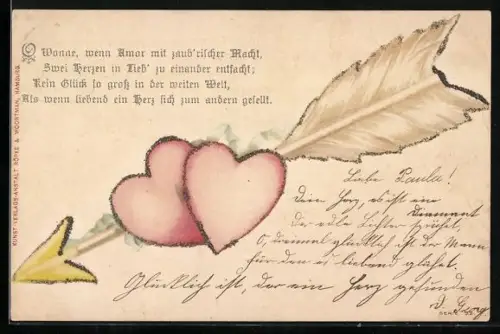 Wonne, wenn Amor mit zaub'rischer Macht,
Zwei Herzen in Lieb' zu einander entfacht;
Kein Glück so groß in der weiten Welt,
Als wenn liebend ein Herz sich zum andern gesellt.
KUNST-VERLAGS-ANSTALT KÖPKE & WOORTMAN, HAMBURG.
Liebe Paula!
Dein Herz, es ist ein
Diamant
der edle Lichter sprühet,
O, dreimal glücklich ist der Mann
für den es liebend glühet.
Glücklich ist, der ein Herz gefunden
D. Georg